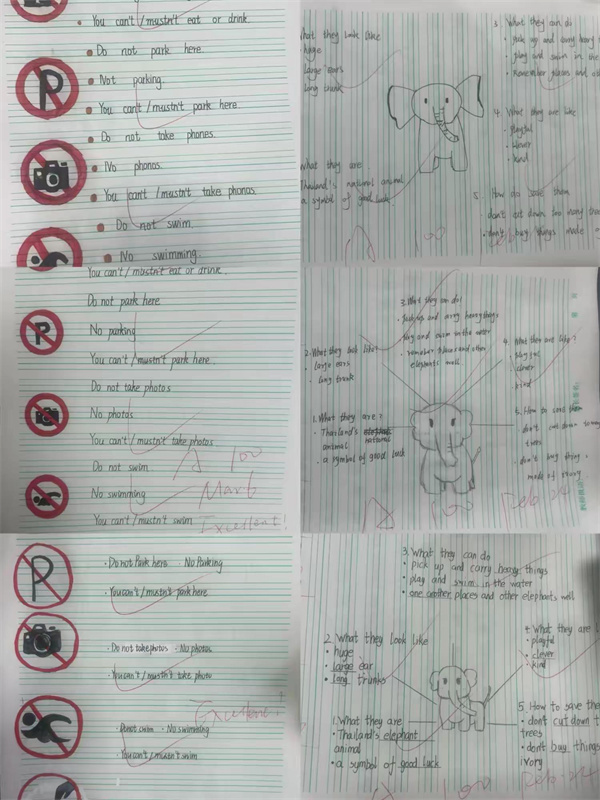 You can't / mustn't eat or drink.
Do not park here.
Not parking.
You can't / mustn't park here.
Do not take phones.
No phonos.
You can't / mustn't take phonos.
Do not swim.
No swimming.
What they look like
huge
large ears
long trunk
What they are
Thailand's national animal
a symbol of good luck
3. What they can do
pick up and carry heavy
play and swim in the
Remember places and
4. What they are like
playful
clever
kind
5. How do save them
don't cut down too many
don't buy things made
A 100
You can't / mustn't eat or drink.
Do not park here
No parking
You can't / mustn't park here.
Do not take photos
No photos
You can't / mustn't take photos
Do not swim
No swimming
You can't / mustn't swim
A 100
Excellent!
3. What they can do?
play and swim in the water
elephants well.
2. What they look like?
large ears
long trunk
4. What they are like?
clever
kind
1. What they are?
Thailand's
national
animal
a symbol of good luck
5. How to save them
don't cut down
trees
don't buy things
made of ivory
A 100
P
Do not Park here · No Parking
You can't / mustn't park here
Do not take photos · No photos
You can't / mustn't take photo
Excellent!
Do not swim · No swimming
You can't / mustn't swim
3. What they can do
pick up and carry heavy things
play and swim in the water
places and other elephants well
2. What they look like
huge
large ear
long trunks
4. What they are
playful
clever
kind
1. What they are
Thailand's elephant
animal
a symbol of good luck
5. How to save the
don't cut down t
trees
don't buy things
ivory
A 100